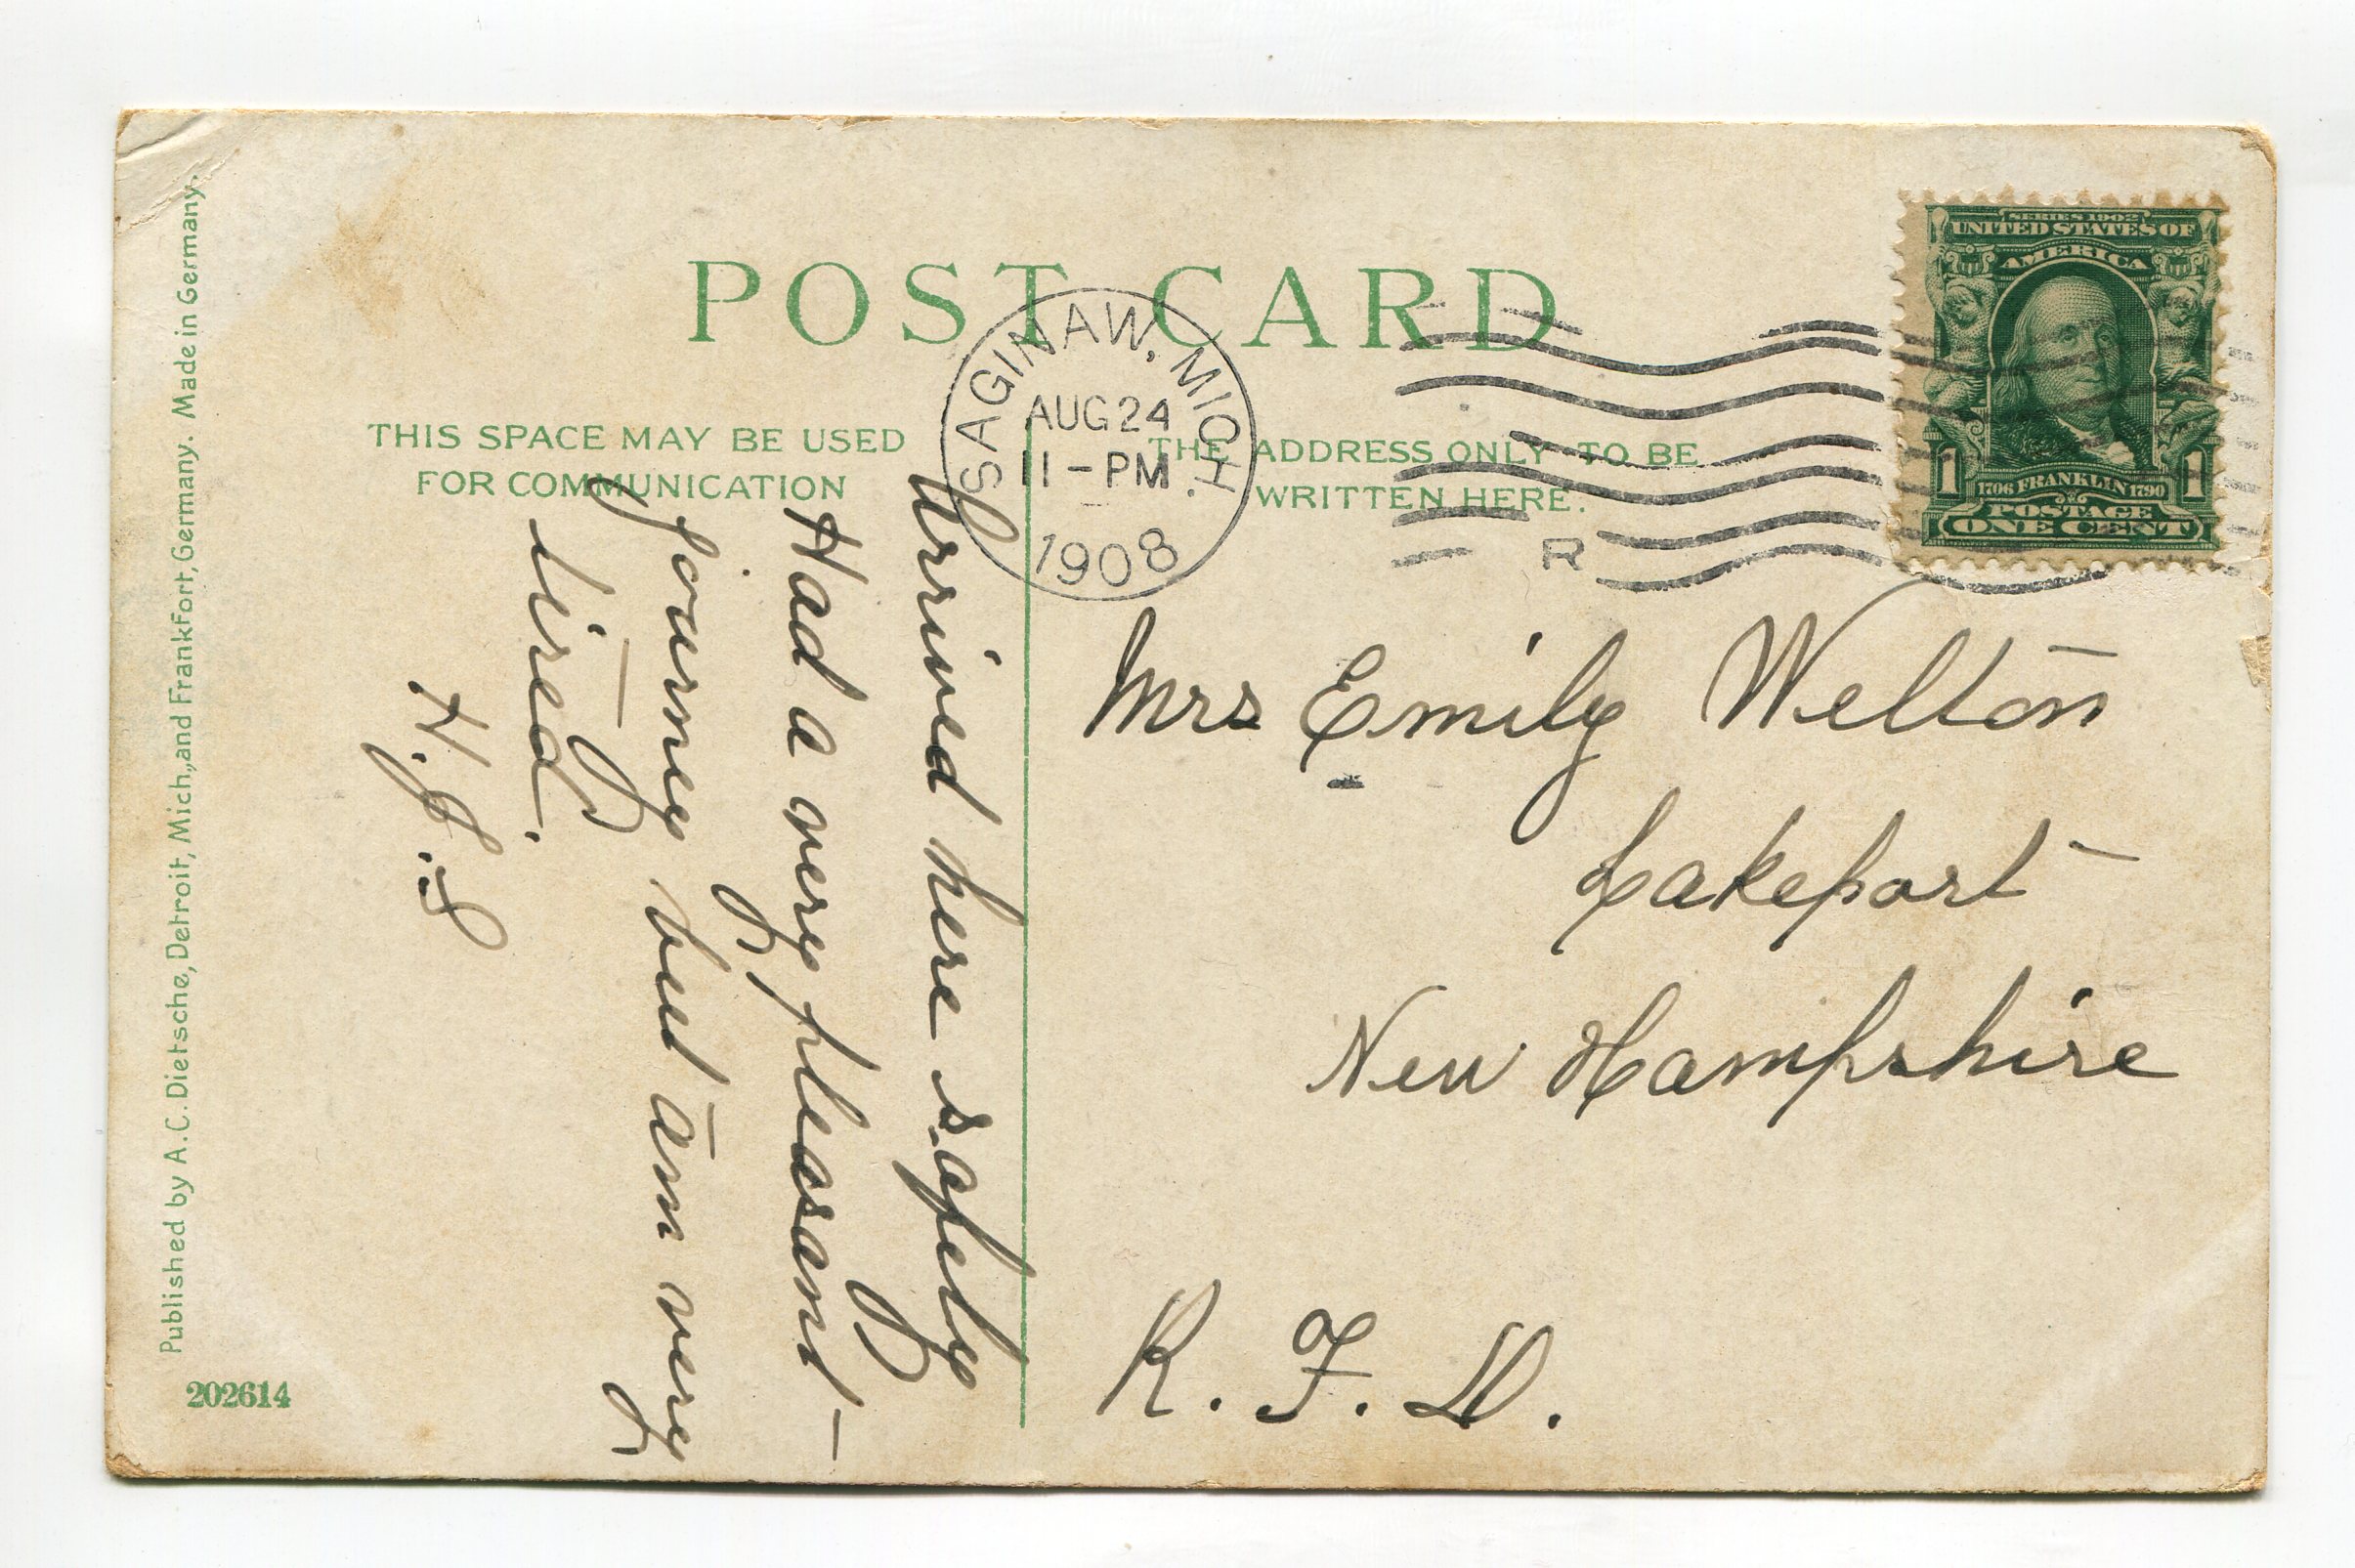 POST CARD
THIS SPACE MAY BE USED
FOR COMMUNICATION
THE ADDRESS ONLY TO BE
WRITTEN HERE.
SAGINAW, MICH.
AUG 24
11-PM
1908
R
SERIES 1902
UNITED STATES OF
AMERICA
1706 FRANKLIN 1790
1 1
POSTAGE
ONE CENT
Arrived here safely
Had a very pleasant
journey but am very
tired.
H.J.S
Mrs Emily Welton
Lakeport
New Hampshire
R. F. D.
Published by A.C. Dietsche, Detroit, Mich., and Frankfort, Germany. Made in Germany.
202614